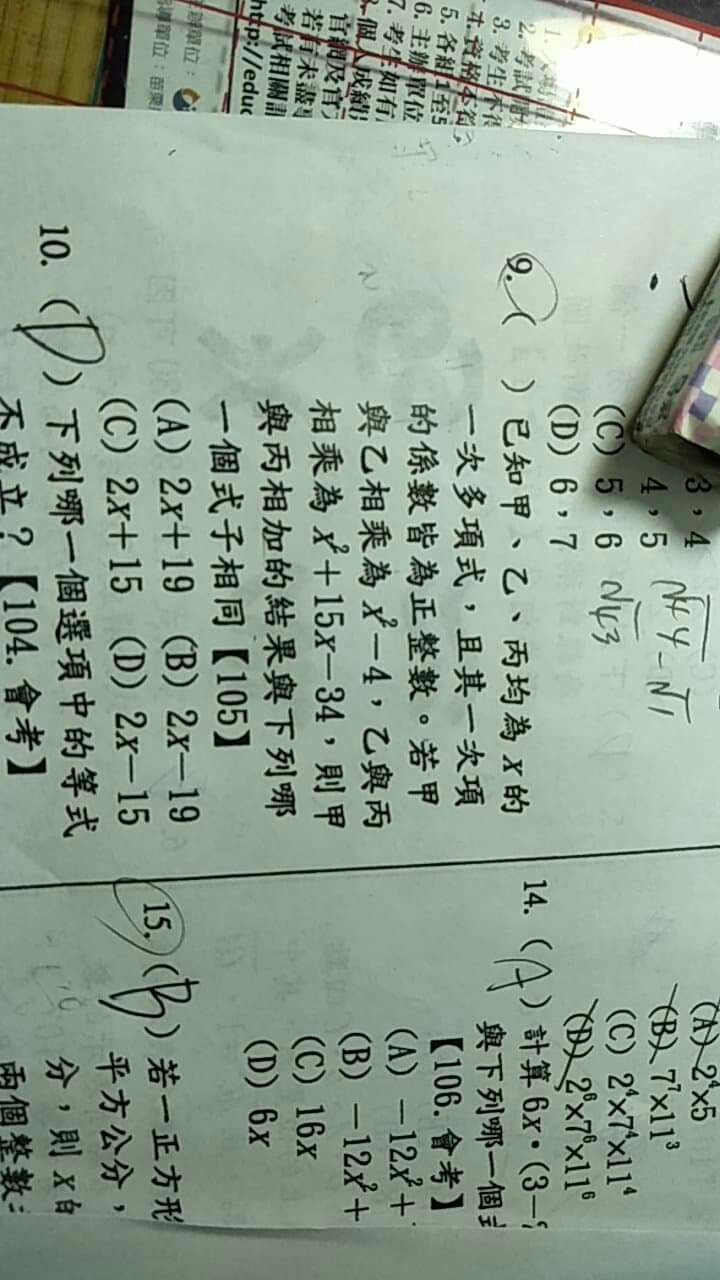 3,4
4,5
(C) 5,6
(D) 6,7
9. ( ) 已知甲、乙、丙均為 x 的
一次多項式，且其一次項
的係數皆為正整數。若甲
與乙相乘為 x²-4，乙與丙
相乘為 x²+15x-34，則甲
與丙相加的結果與下列哪
一個式子相同【105】
(A) 2x+19 (B) 2x-19
(C) 2x+15 (D) 2x-15
10. (D) 下列哪一個選項中的等式
不成立？【104.會考】
(A) 2⁴×5
(B) 7⁷×11³
(C) 2⁴×7⁴×11⁴
(D) 2⁶×7⁶×11⁶
14. (A) 計算 6x·(3-
與下列哪一個
【106.會考】
(A) -12x²+
(B) -12x²+
(C) 16x
(D) 6x
15. (B) 若一正方形
平方公分，
分，則 x 的
兩個整數
2. 考試
3. 考生
5. 各組 1至5
6. 主辦單位
7. 考生如有
個人成績
官網及官
若有未盡
考試相關
http://educ
單位：
單位：苗栗